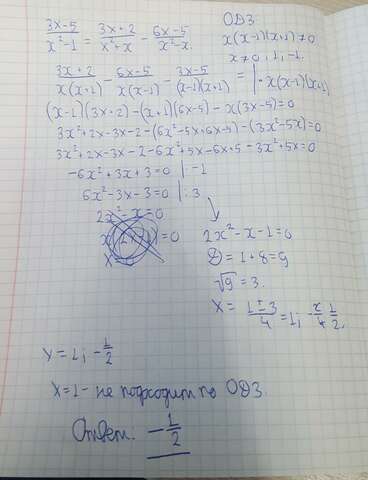 (3x-5)/(x²-1) = (3x+2)/(x²+x) - (6x-5)/(x²-x).
ОДЗ
x(x-1)(x+1)≠0
x≠0, 1, -1.
(3x+2)/(x(x+1)) - (6x-5)/(x(x-1)) - (3x-5)/((x-1)(x+1)) = | · x(x-1)(x+1)
(x-1)(3x+2)-(x+1)(6x-5)-x(3x-5)=0
3x²+2x-3x-2-(6x²-5x+6x-5)-(3x²-5x)=0
3x²+2x-3x-2-6x²+5x-6x+5-3x²+5x=0
-6x²+3x+3=0 | -1
6x²-3x-3=0 | :3
2x²-x=0
2x²-x-1=0
D=1+8=9
√9=3.
x= (1±3)/4 =1; -1/2
x=1; -1/2
x=1- не подходит по ОДЗ.
Ответ: -1/2